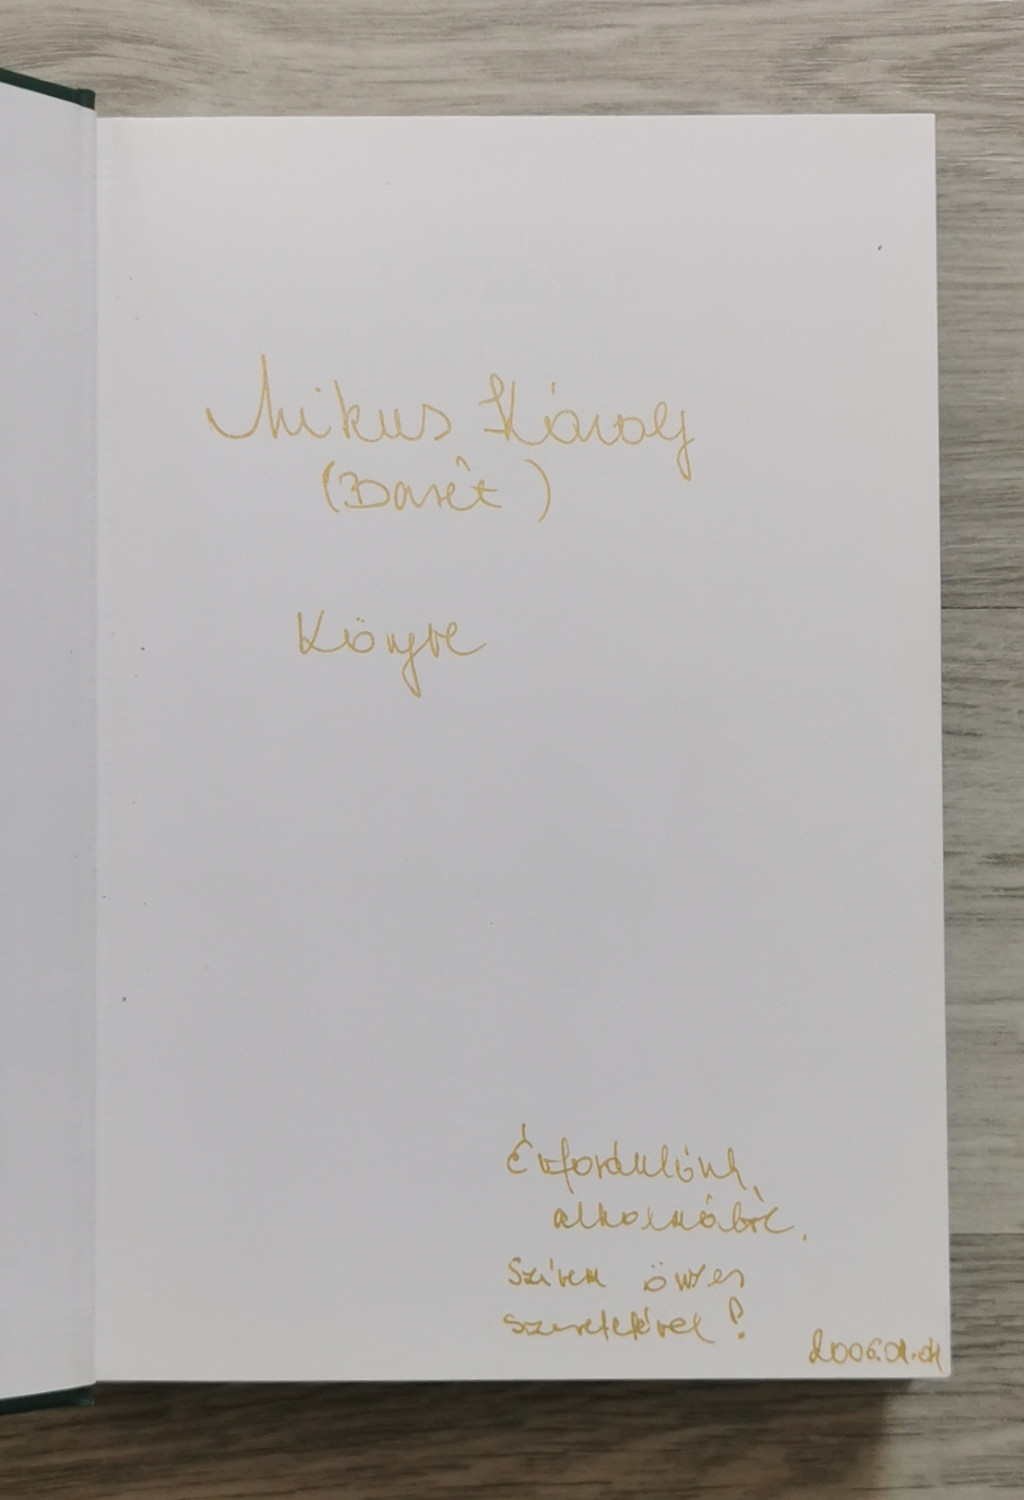 Mikus Károly
Könyve
Évfordulónk
alkalmából.
Szívem összes
szeretetével!
2006.01.01